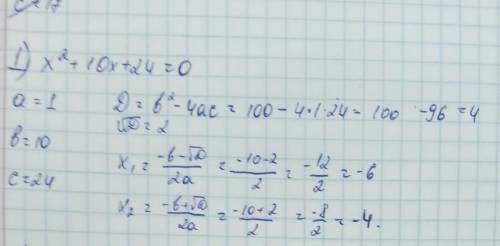 1) x² + 10x + 24 = 0
a = 1 D = b² - 4ac = 100 - 4·1·24 = 100 - 96 = 4
√D = 2
b = 10
x₁ = (-b-√D)/2a = (-10-2)/2 = -12/2 = -6
c = 24
x₂ = (-b+√D)/2a = (-10+2)/2 = -8/2 = -4.